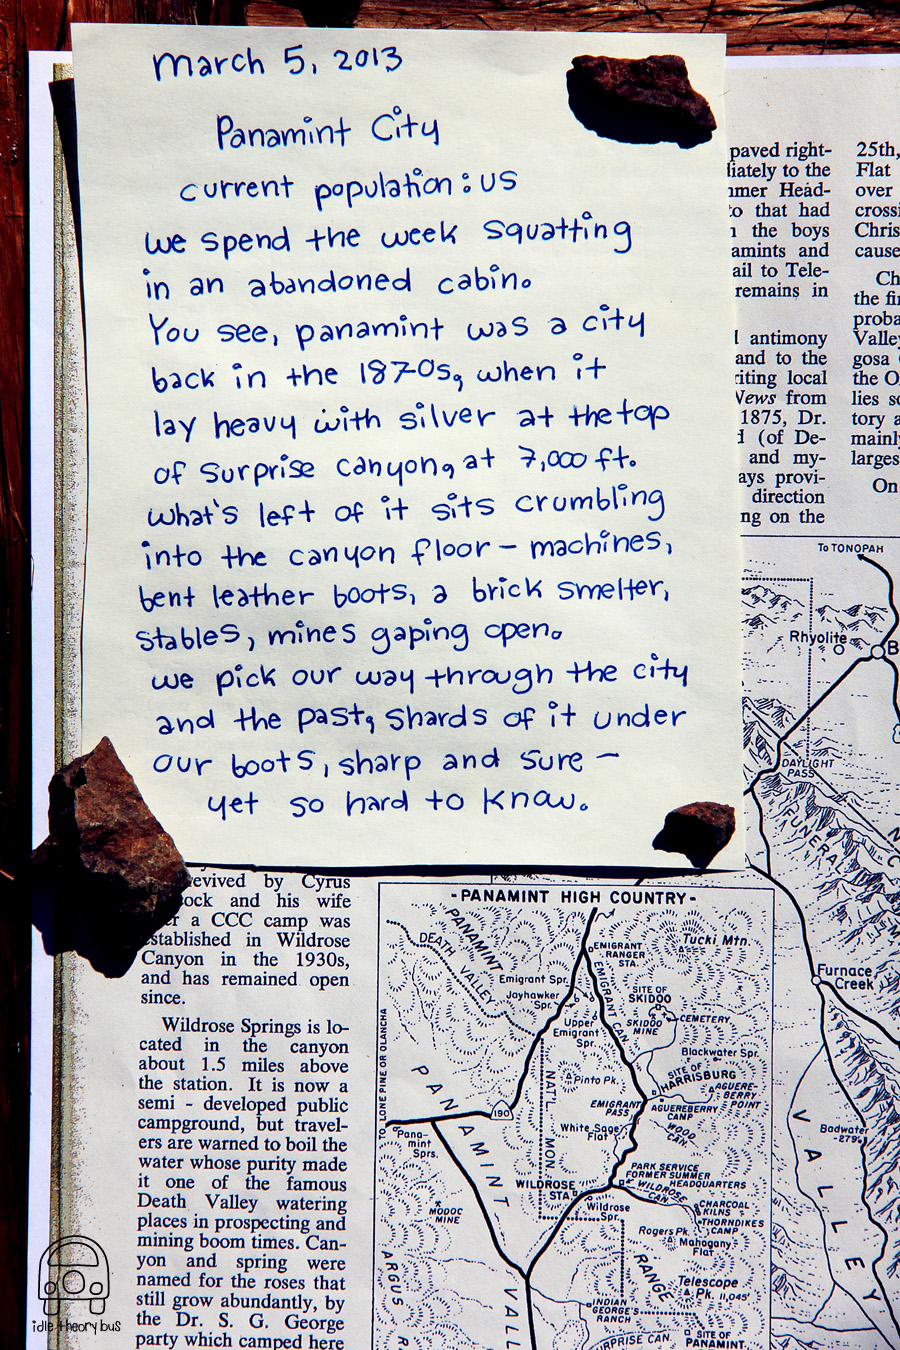 March 5, 2013
Panamint City
current population: us
we spend the week squatting
in an abandoned cabin.
You see, panamint was a city
back in the 1870s, when it
lay heavy with silver at the top
of surprise canyon, at 7,000 ft.
what's left of it sits crumbling
into the canyon floor - machines,
bent leather boots, a brick smelter,
stables, mines gaping open.
we pick our way through the city
and the past, shards of it under
our boots, sharp and sure -
yet so hard to know.
paved right-
iately to the
mer Head-
to that had
the boys
amints and
ail to Tele-
remains in
antimony
and to the
riting local
News from
1875, Dr.
(of De-
and my-
ays provi-
direction
ng on the
25th,
Flat
over
crossi
Chris
cause
Ch
the fi
proba
Valley
gosa
the O
lies so
tory a
mainl
larges
On
To TONOPAH
Rhyolite
B
DAYLIGHT
PASS
FUNERAL
Furnace
Creek
Badwater
-279
VALLEY
evived by Cyrus
ock and his wife
er a CCC camp was
established in Wildrose
Canyon in the 1930s,
and has remained open
since.
Wildrose Springs is lo-
cated in the canyon
about 1.5 miles above
the station. It is now a
semi - developed public
campground, but travel-
ers are warned to boil the
water whose purity made
it one of the famous
Death Valley watering
places in prospecting and
mining boom times. Can-
yon and spring were
named for the roses that
still grow abundantly, by
the Dr. S. G. George
party which camped here
-PANAMINT HIGH COUNTRY-
PANAMINT
DEATH VALLEY
EMIGRANT
RANGER
STA.
Tucki Mtn.
Emigrant Spr.
Jayhawker
Spr.
EMIGRANT CAN.
SITE OF
SKIDOO
CEMETERY
SKIDOO
MINE
Upper
Emigrant
Spr.
Blackwater Spr.
SITE OF
HARRISBURG
Pinto Pk.
AGUERE-
BERRY
POINT
EMIGRANT
PASS
AGUEREBERRY
CAMP
White Sage
Flat
WOOD
CAN.
NAT'L
MON
190
TO LONE PINE OR OLANCHA
Pana-
mint
Sprs.
PANAMINT
PARK SERVICE
FORMER SUMMER
HEADQUARTERS
WILDROSE
STA.
WILDROSE
CAN.
Wildrose
Spr.
CHARCOAL
KILNS
THORNDIKES
CAMP
Rogers Pk.
Mahogany
Flat
MODOC
MINE
RANGE
Telescope
Pk. 11,045'
ARGUS
R
VALL
INDIAN
GEORGE'S
RANCH
RPRISE CAN.
SITE OF
PANAMINT
idle theory bus